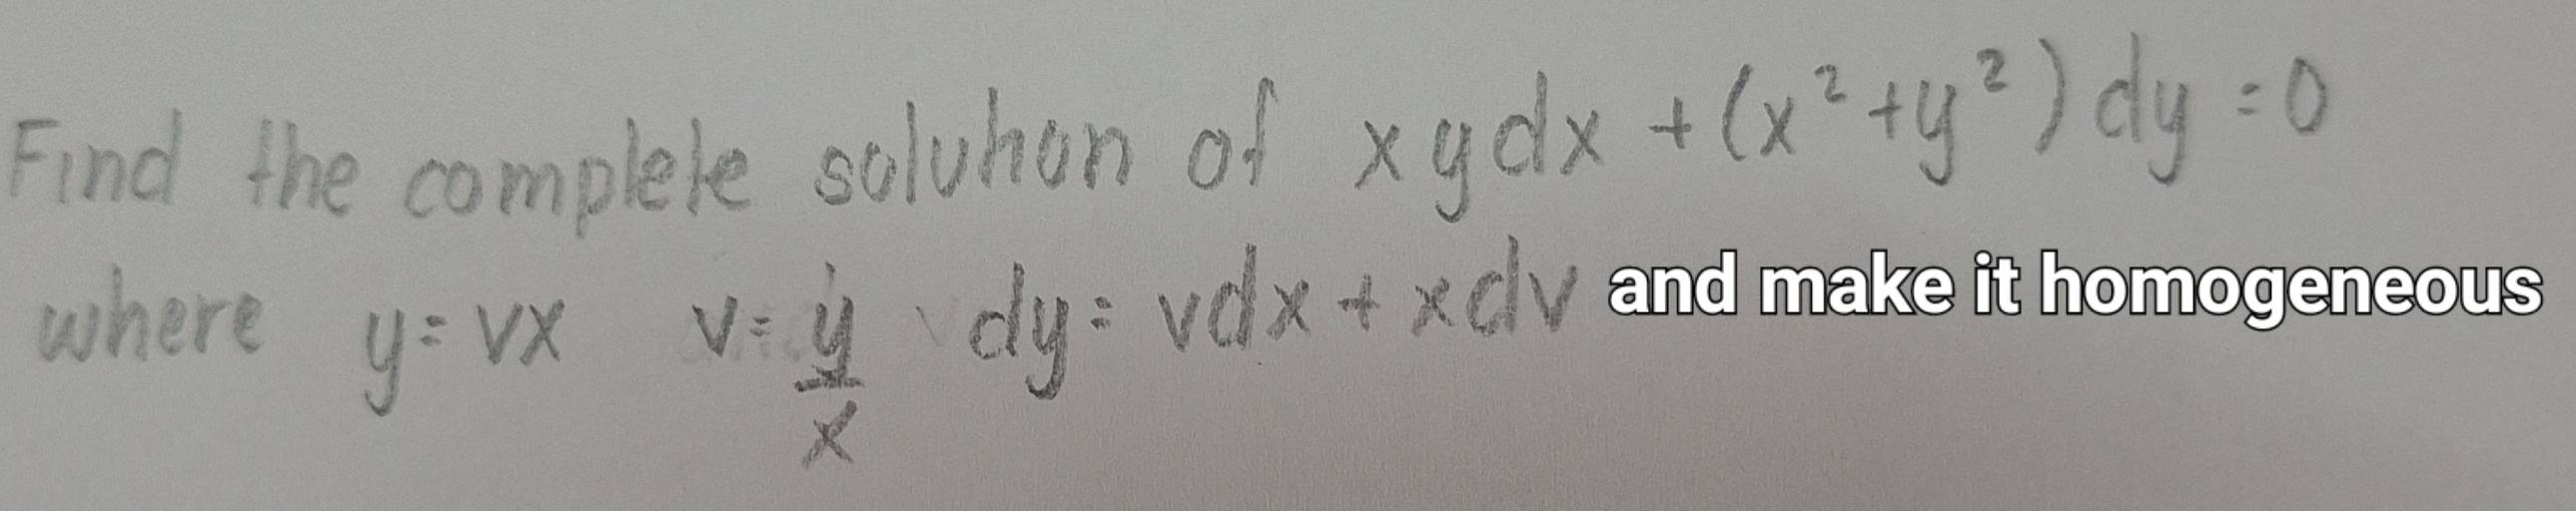 Find the complete solution of xydx + (x² + y²) dy = 0
where y = vx v = y/x dy = vdx + xdv and make it homogeneous